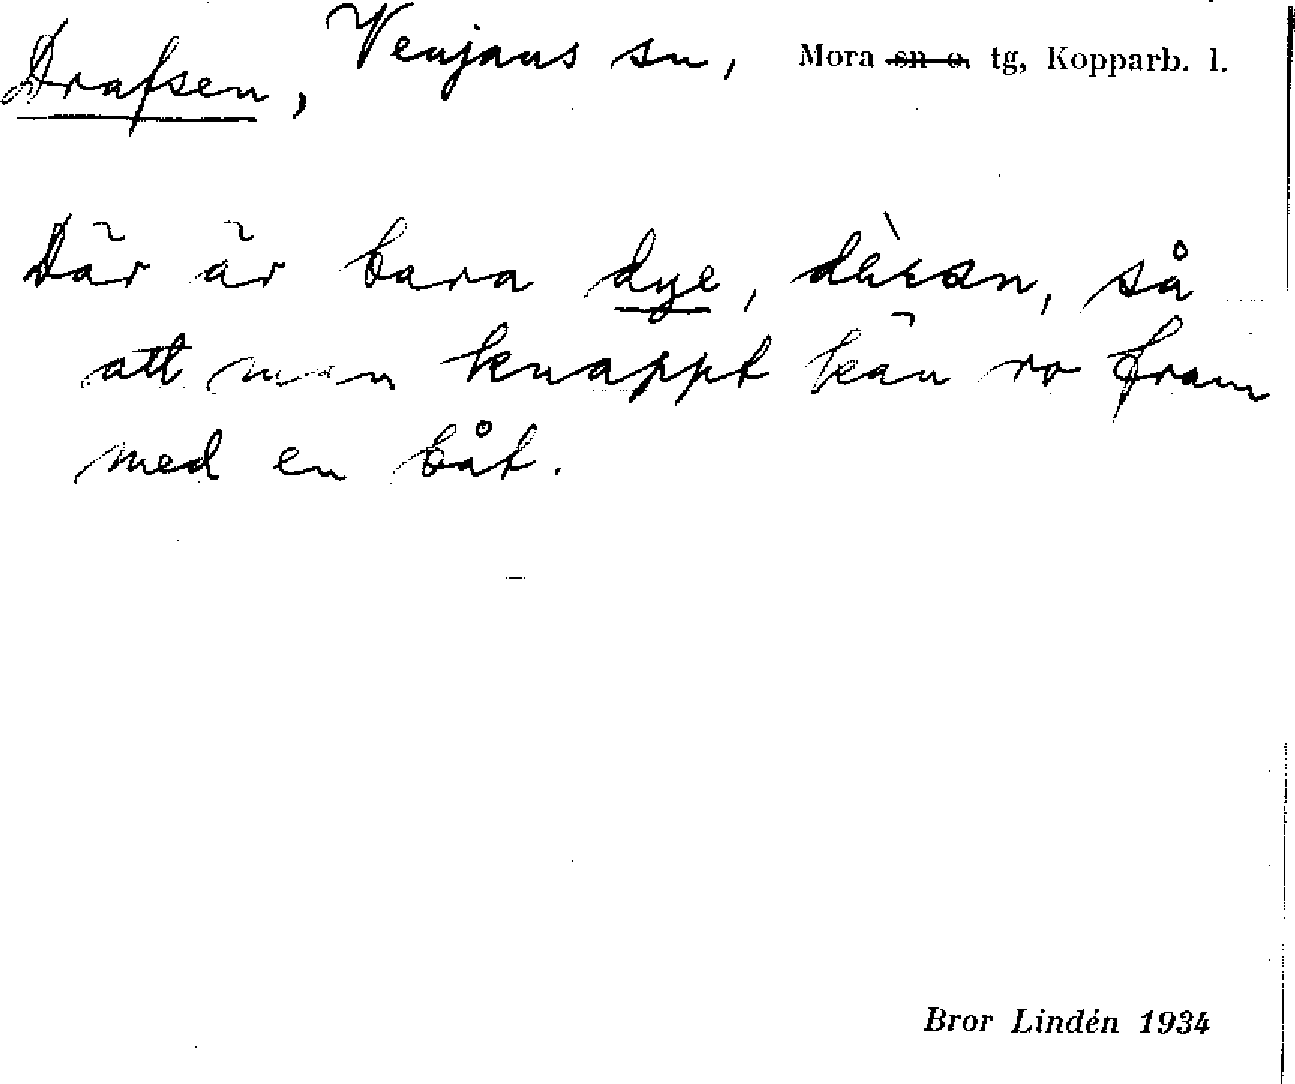 Drafsen, Venjans sn, Mora sn o. tg, Kopparb. l.
Där är bara dye, så
att man knappt kan ro fram
med en båt.
Bror Lindén 1934